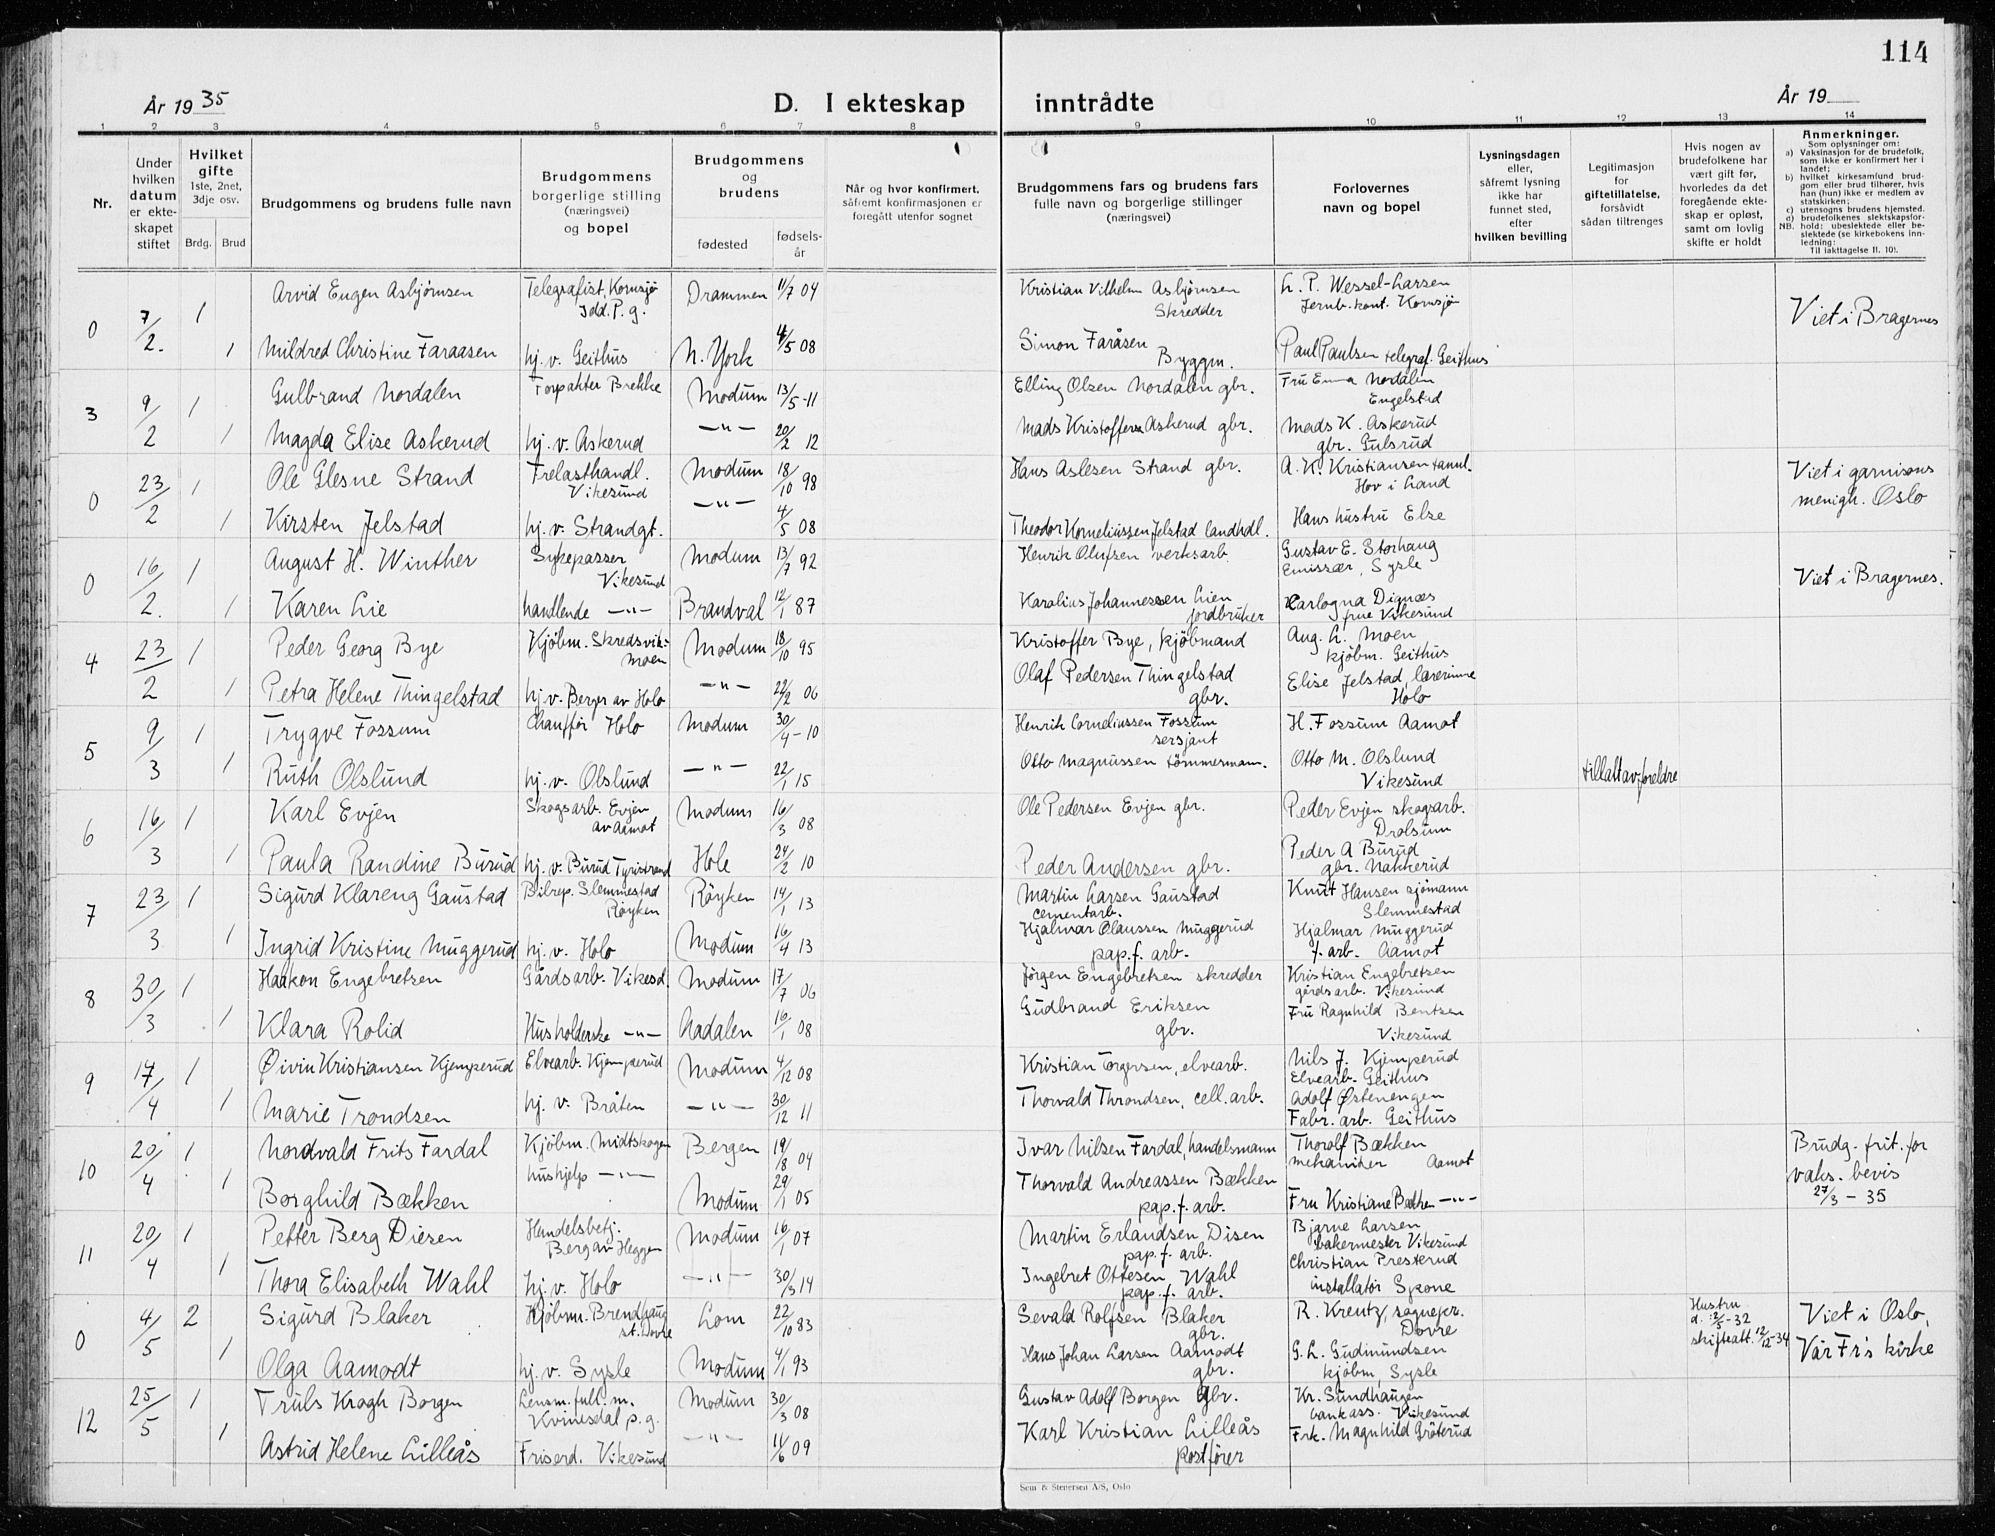 114
År 1935
D. I ekteskap inntrådte
År 19
1 2 3 4 5 6 7 8 9 10 11 12 13 14
Nr.
Under hvilken datum er ekteskapet stiftet
Hvilket gifte 1ste, 2net, 3dje osv.
Brdg. Brud
Brudgommens og brudens fulle navn
Brudgommens borgerlige stilling (næringsvei) og bopel
Brudgommens og brudens
fødested
fødselsår
Når og hvor konfirmert, såfremt konfirmasjonen er foregått utenfor sognet
Brudgommens fars og brudens fars fulle navn og borgerlige stillinger (næringsvei)
Forlovernes navn og bopel
Lysningsdagen eller, såfremt lysning ikke har funnet sted, efter hvilken bevilling
Legitimasjon for giftetillatelse, forsåvidt sådan tiltrenges
Hvis nogen av brudefolkene har vært gift før, hvorledes da det foregående ekteskap er opløst, samt om lovlig skifte er holdt
Anmerkninger.
Som oplysninger om:
a) Vaksinasjon for de brudefolk, som ikke er konfirmert her i landet;
b) hvilket kirkesamfund brudgom eller brud tilhører, hvis han (hun) ikke er medlem av statskirken;
c) utensogns brudens hjemsted.
d) brudefolkenes slektskapsforhold: ubeslektede eller beslektede (se kirkebokens innledning:
NB.
Til iakttagelse II. 10).
0 7/2. 1 Arvid Eugen Asbjørnsen Telegrafist, Kornsjø Idd. P. g. Drammen 11/7 04 Kristian Vilhelm Asbjørnsen Skredder L. P. Wessel-Larsen Jernb. kont. Kornsjø Viet i Bragernes
1 Mildred Christine Faraasen hj. v. Geithus N. York 4/5 08 Simon Faråsen Byggm. Paul Paulsen telegraf. Geithus
3 9/2 1 Gulbrand Nordalen Forpakter Brekke Modum 13/5-11 Elling Olsen Nordalen gbr. Fru Emma Nordalen Engelstad
1 Magda Elise Askerud hj. v. Askerud —"— 20/2 12 Mads Kristoffersen Askerud gbr. Mads K. Askerud gbr. Gulsrud
0 23/2 1 Ole Glesne Strand Trelasthandl. Vikesund Modum 18/10 98 Hans Aslesen Strand gbr. A. K. Kristiansen tannl. Hov i Land Viet i garnisons menigh. Oslo
1 Kirsten Jelstad hj. v. Strandgt. —"— 4/5 08 Theodor Korneliussen Jelstad landhdl. Hans hustru Else
0 16/2. 1 August H. Winther Sykepasser Vikesund Modum 13/7 92 Henrik Olufsen verksarb. Gustav E. Storhaug Emissær, Sysle Viet i Bragernes.
1 Karen Lie handlende —"— Brandval 12/1 87 Karolius Johannessen Lien jordbruker Karlogna Dignæs frue Vikesund
4 23/2 1 Peder Georg Bye Kjøbm. Skredsvikmoen Modum 18/10 95 Kristoffer Bye, kjøbmand Aug. L. Moen kjøbm. Geithus
1 Petra Helene Thingelstad hj. v. Berger av Holo —"— 22/2 06 Olaf Pedersen Thingelstad gbr. Elise Jelstad, lærerinne Holo
5 9/3 1 Trygve Fossum Chauffør Holo Modum 30/4-10 Henrik Corneliussen Fossum sersjant H. Fossum Aamot
1 Ruth Olslund hj. v. Olslund —"— 22/1 15 Otto Magnussen tømmermann. Otto M. Olslund Vikesund tillatt av foreldre
6 16/3 1 Karl Evjen Skogsarb. Evjen av Aamot Modum 16/3 08 Ole Pedersen Evjen gbr. Peder Evjen skogsarb. Drolsum
1 Paula Randine Burud hj. v. Burud Tyristrand Hole 24/2 10 Peder Andersen gbr. Peder A Burud gbr. Nakkerud
7 23/3 1 Sigurd Klareng Gaustad Bilrep. Slemmestad Røyken Røyken 14/1 13 Martin Larsen Gaustad cementarb. Knut Hansen sjømann Slemmestad
1 Ingrid Kristine Muggerud hj. v. Holo Modum 16/4 13 Hjalmar Olaussen Muggerud pap. f. arb. Hjalmar Muggerud f. arb. Aamot
8 30/3 1 Haakon Engebretsen Gårdsarb. Vikesd. Modum 17/7 06 Jørgen Engebretsen skredder Kristian Engebretsen gårdsarb. Vikesund
1 Klara Rolid Husholderske —"— Aadalen 16/1 08 Gudbrand Eriksen gbr. Fru Ragnhild Bentsen Vikesund
9 17/4 1 Øivin Kristiansen Kjemperud Elvearb. Kjemperud Modum 4/12 08 Kristian Torgersen, elvearb. Nils J. Kjemperud Elvearb. Geithus
1 Marie Trondsen hj. v. Bråten —"— 30/12 11 Thorvald Throndsen, cell. arb. Adolf Østenengen Fabr. arb. Geithus
10 20/4 1 Nordvald Frits Fardal Kjøbm. Midtskogen Bergen 19/8 04 Ivar Nilsen Fardal, handelsmann Thorolf Bækken mekaniker Aamot Brudg. frit. for vaks. bevis 27/3-35
1 Borghild Bækken hushjelp —"— Modum 29/1 05 Thorvald Andreassen Bækken pap. f. arb. Fru Kristiane Bækken —"—
11 20/4 1 Petter Berg Diesen Handelsbetj. Berg av Heggen Modum 16/1 07 Martin Erlandsen Disen pap. f. arb. Bjarne Larsen bakermester Vikesund
1 Thora Elisabeth Wahl hj. v. Holo —"— 30/3 14 Ingebret Ottesen Wahl pap. f. arb. Christian Presterud installatør Spone
0 4/5 2 Sigurd Blaker Kjøbm. Brendhaug st. Dovre Lom 22/10 83 Sevald Rolfsen Blaker gbr. R. Kreutz, sognepr. Dovre Hustru d. 2/5-32 skifteatt. 12/12-34 Viet i Oslo, Vår Fr's kirke
1 Olga Aamodt hj. v. Sysle Modum 4/1 93 Hans Johan Larsen Aamodt gbr. G. L. Gudmundsen kjøbm, Sysle
12 25/5 1 Truls Krogh Borgen Lensm. fullm. Kvinesdal p. g. Modum 30/3 08 Gustav Adolf Borgen gbr. Kr. Sundhaugen bankass. Vikesund
1 Astrid Helene Lilleås Friserd. Vikesund —"— 11/6 09 Karl Kristian Lilleås postfører Frk. Magnhild Gröterud
Sem & Stenersen A/S, Oslo